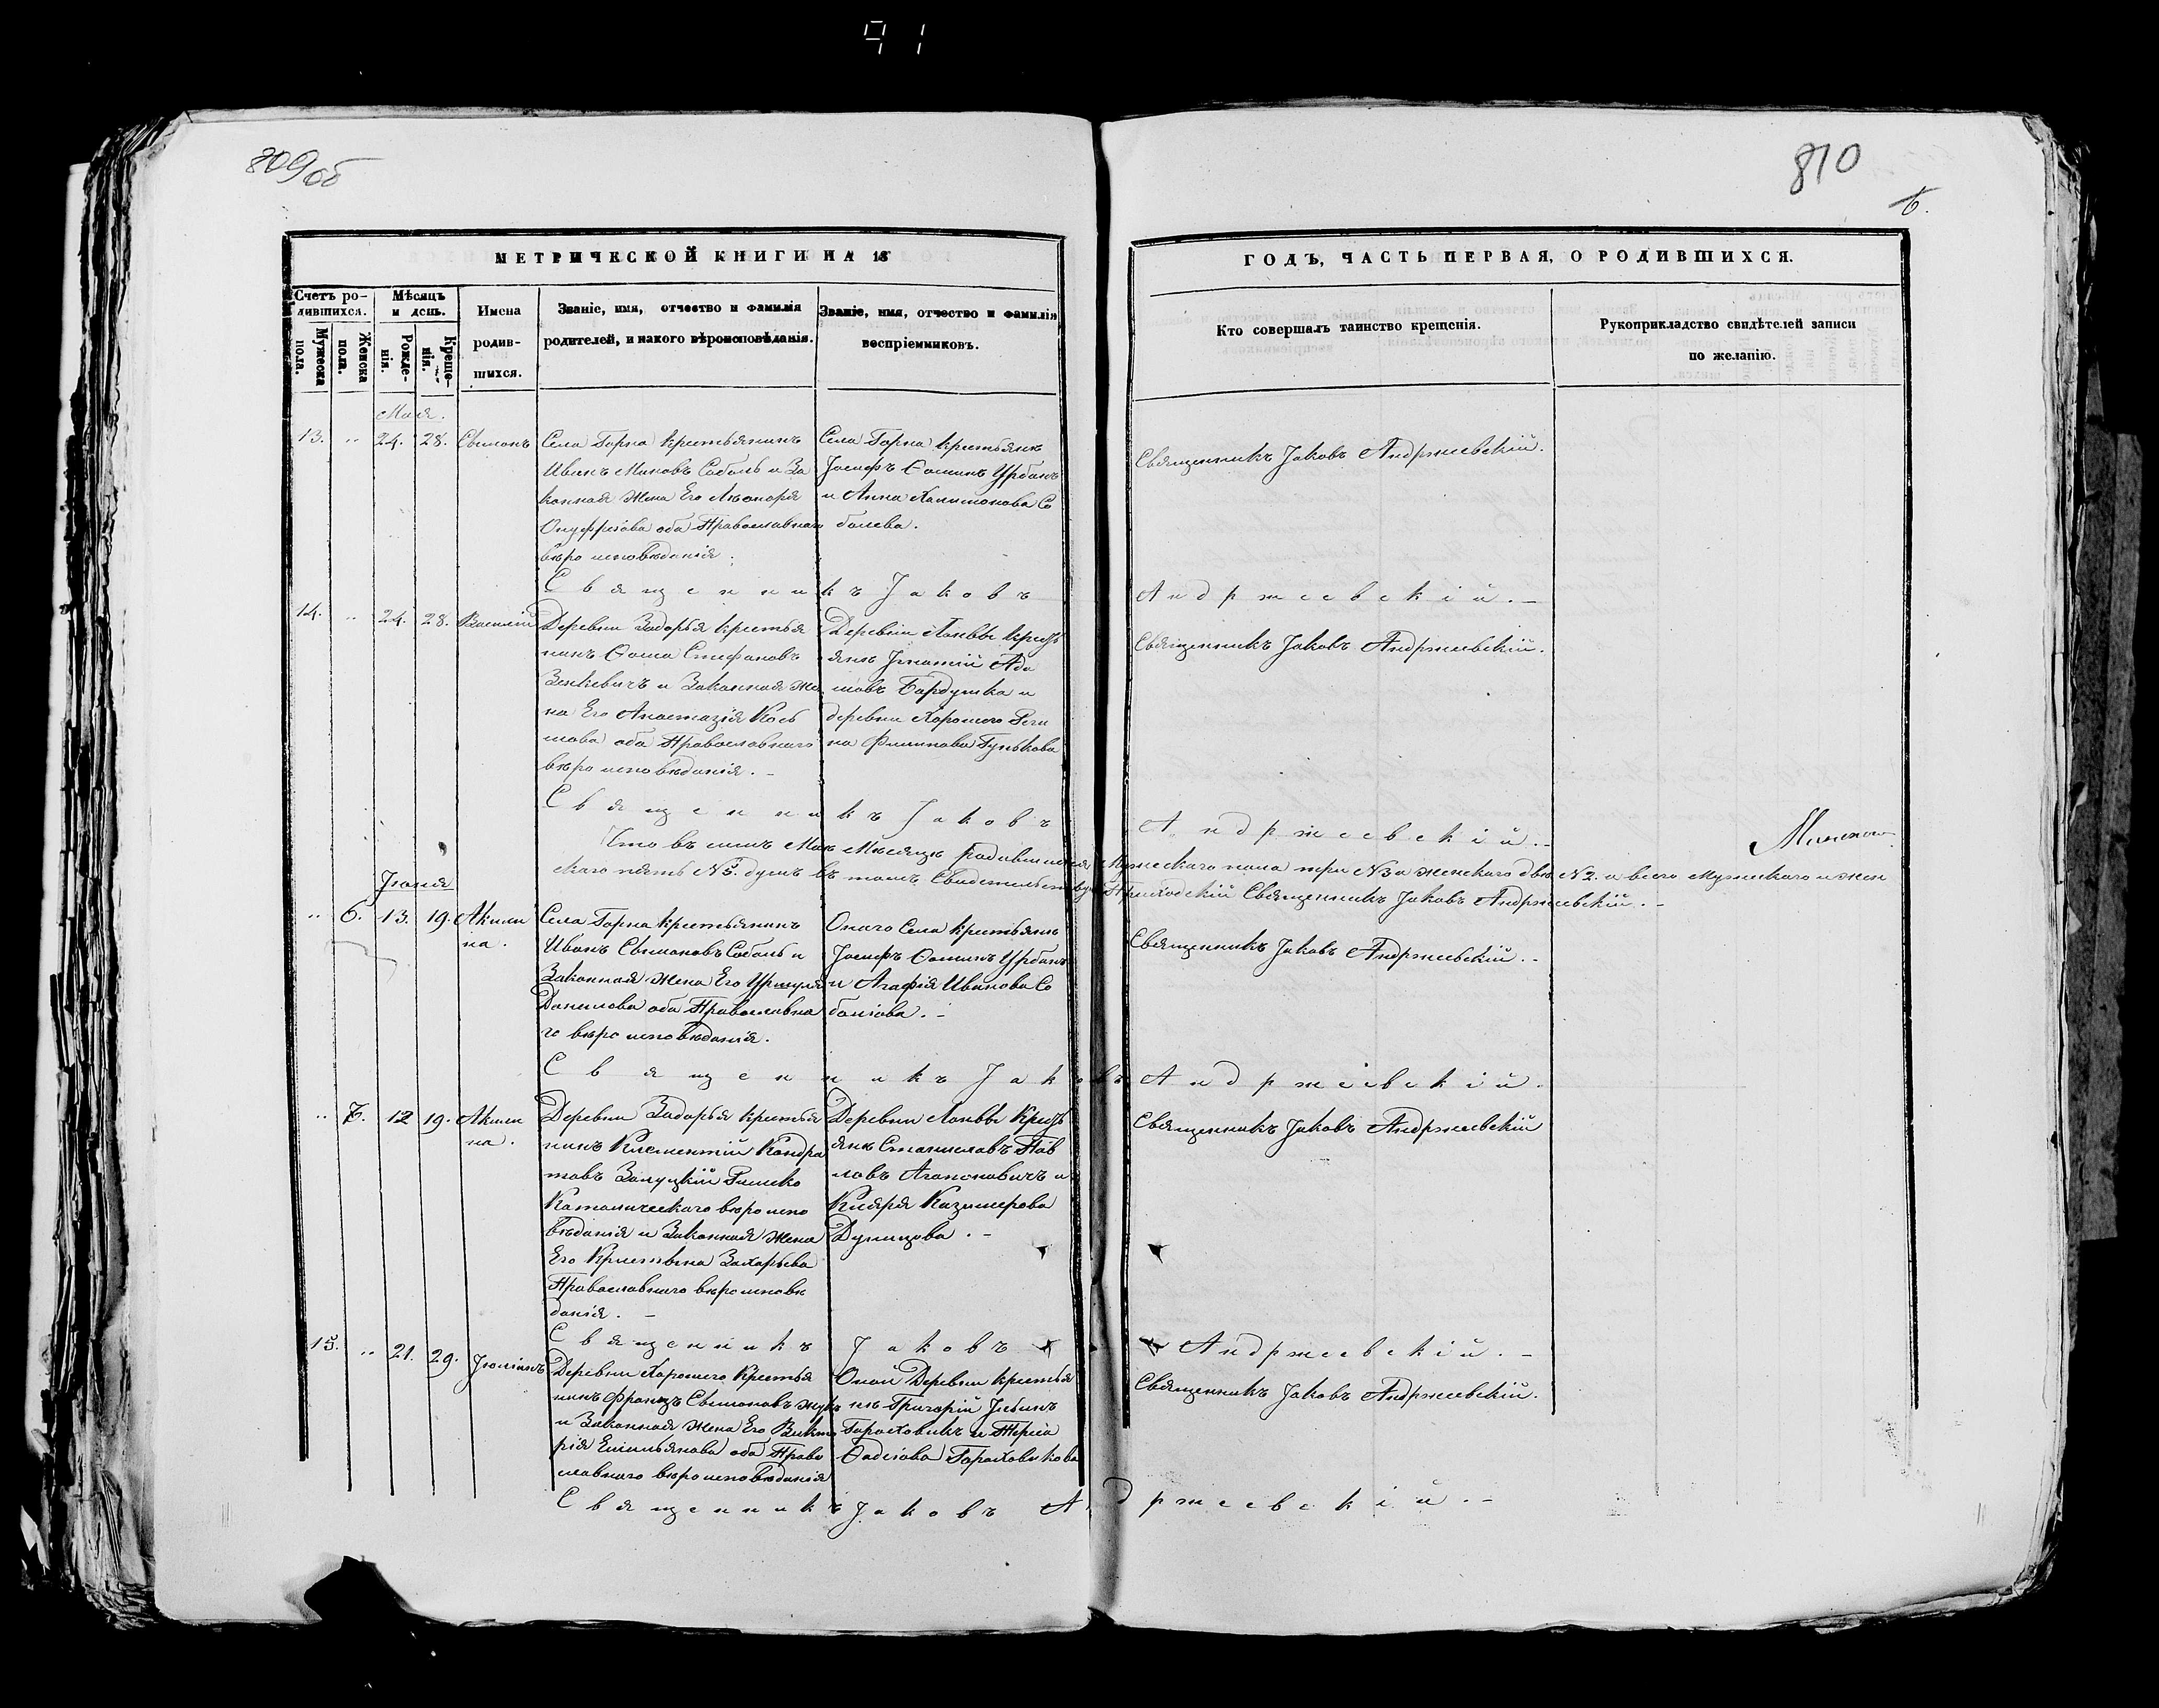 91
809об
810
6.
МЕТРИЧЕСКОЙ КНИГИ НА 18
ГОДЪ, ЧАСТЬ ПЕРВАЯ, О РОДИВШИХСЯ.
Счетъ ро-
дившихся.
Мужеска
пола.
Женска
пола.
Мѣсяцъ
и день.
Рожде-
нія.
Креще-
нія.
Имена
родив-
шихся.
Званіе, имя, отчество и фамилія
родителей, и какого вѣроисповѣданія.
Званіе, имя, отчество и фамилія
воспріемниковъ.
Кто совершалъ таинство крещенія.
Рукоприкладство свидѣтелей записи
по желанію.
Мая.
13. „ 24. 28. Сѵмонъ
Села Горна крестьянинъ
Иванъ Соболь и За
конная жена Его
Онуфріова оба Православнаго
вѣро исповѣданія.
Села Горна крестьяне
Іосифъ Ѳоминъ Урбанъ
и Анна Халимонова Со
болева.
Священникъ Јаковъ Андржеевскій.
Священникъ Јаковъ Андржеевскій. –
14. „ 24. 28. Василій
Деревни Задорья крестья
нинъ Ѳома Стефановъ
Зенкевичъ и Законная же
на Его Анастазія Кось
мова оба Православнаго
вѣро исповѣданія. –
Деревни крестъ
яне Игнатій Ада
мовъ и
деревни Хорошего Реги
на Филипова Гунькова
Священникъ Јаковъ Андржеевскій.
Священникъ Јаковъ Андржеевскій. –
Что въ семъ Маѣ Мѣсяцѣ родившихся Мужескаго пола три №3 и женскаго двѣ №2. а всего мужескаго и жен
скаго пять №5. душъ въ томъ Свидетельствую Приходскій Священникъ Јаковъ Андржеевскій. –
Іюня
„ 6. 13. 19. Акили
на.
Села Горна крестьянинъ
Иванъ Сѵмоновъ Соболь и
Законная жена Его Уршуля
Данилова оба Православна
го вѣро исповѣданія.
Онаго Села крестьяне
Іосифъ Ѳоминъ Урбанъ
и Агафія Иванова Со
боліова. –
Священникъ Јаковъ Андржеевскій. –
Священникъ Јаковъ Андржеевскій.
„ 7. 12 19. Акили
на.
Деревни Задорья крестья
нинъ Клементій Кондра
товъ Залуцкій Римско
Католическаго вѣро испо
вѣданія и Законная жена
Его Кристына Захарьева
Православнаго вѣро исповѣ
данія. –
Деревни крестъ
яне Станиславъ Пав
ловъ Агапоновичъ и
Казимерова
Священникъ Јаковъ Андржеевскій
Священникъ Јаковъ Андржеевскій. –
15. „ 21. 29. Іюліанъ
Деревни Хорошего Крестья
нинъ Францъ Сѵмоновъ
и Законная жена Его Викто
рія Емильянова оба Право
славнаго вѣро исповѣданія
Оной Деревни крестья
не Григорій
Гороховикъ и Тереса
Гороховикова
Священникъ Јаковъ Андржеевскій.
Священникъ Јаковъ Андржеевскій. –